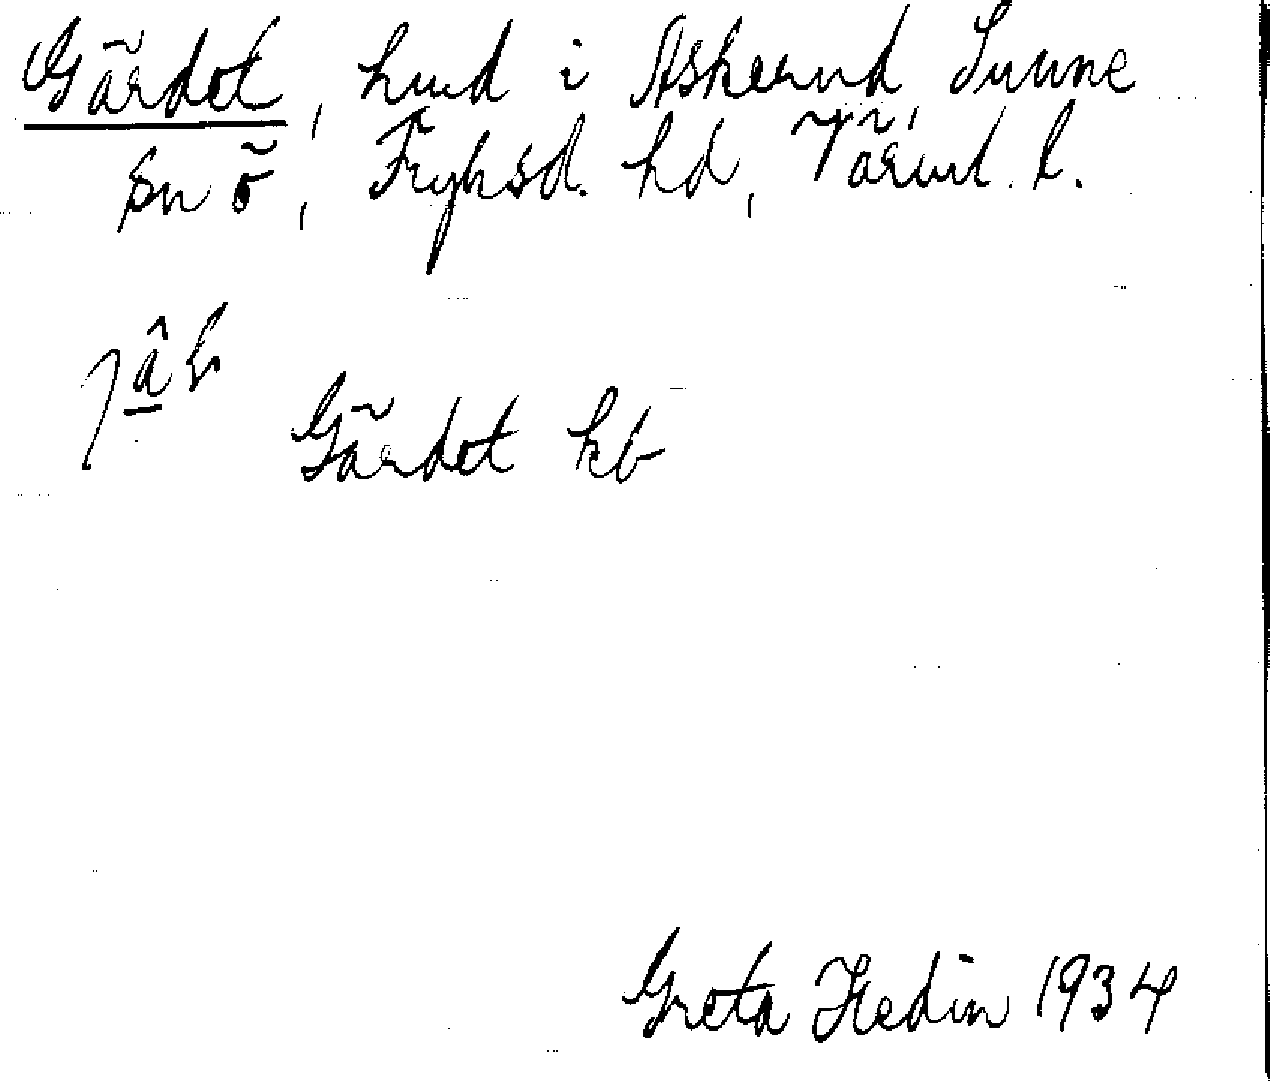 Gärdet, hmd i Askerud, Sunne
sn ö, Fryksd. hd, Värml. l.
Gärdet kb
Greta Hedin 1934